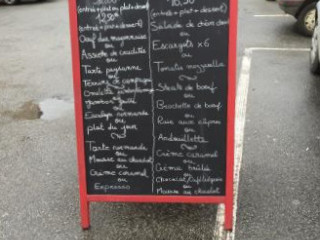 (entrée + plat ou plat + dessert)
12,90€
Oeuf dur mayonnaise
ou
Assiette de crudités
ou
Tarte paysanne
ou
Terrine de campagne
ou
Escalope normande
ou
plat du jour
Tarte normande
ou
Mousse au chocolat
ou
Crème caramel
ou
Expresso
(entrée + plat + dessert)
Salade de chèvre chaud
ou
Escargots x6
ou
Tomate mozzarella
Steak de boeuf
ou
Brochette de boeuf
ou
Raie aux câpres
ou
Andouillette
Crème caramel
ou
Crème brûlée
ou
ou
Mousse au chocolat